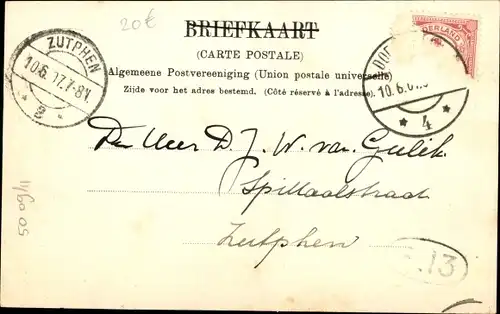 20€
BRIEFKAART
(CARTE POSTALE)
Algemeene Postvereeniging (Union postale universelle)
Zijde voor het adres bestemd. (Côté réservé à l'adresse).
ZUTPHEN
10.6.07.7-8V.
2
NEDERLAND
10.6.07.
4
Den Heer D. J. W. van Gulik.
Spittaalstraat
Zutphen
.13